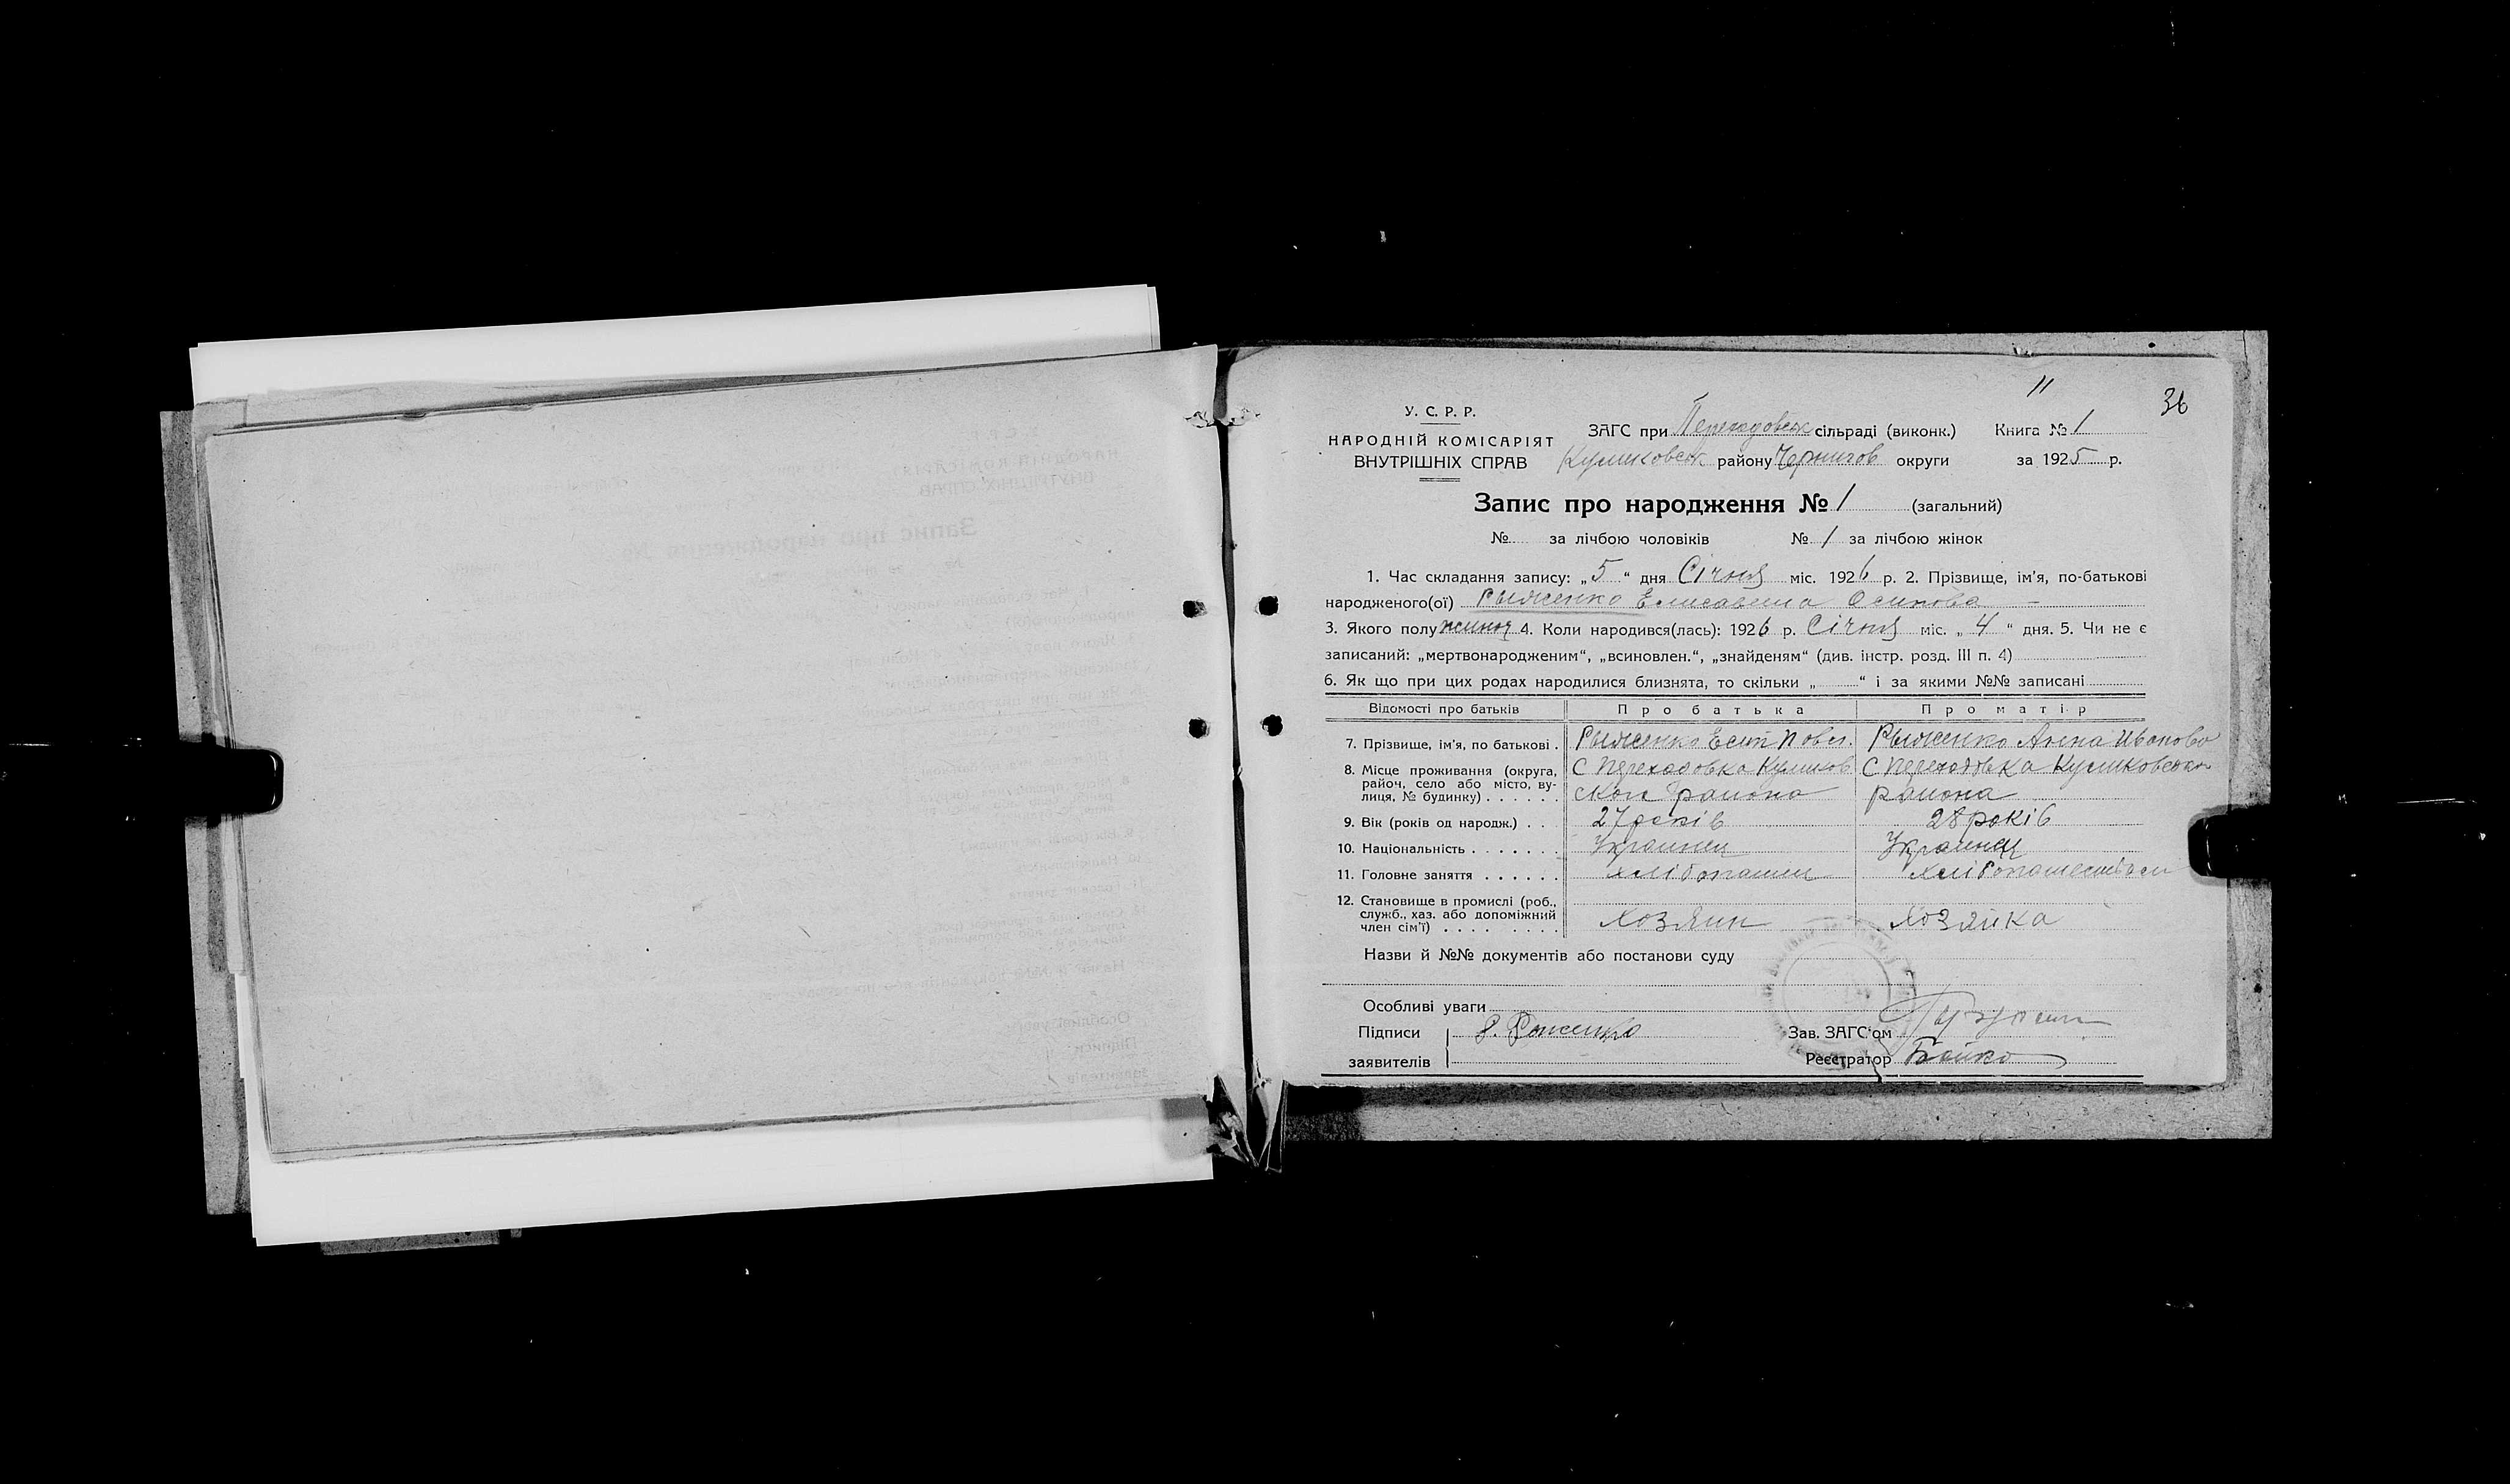 11
36
У. С. Р. Р.
НАРОДНІЙ КОМІСАРІЯТ
ВНУТРІШНІХ СПРАВ
ЗАГС при Переходовськ сільраді (виконк.) Книга № 1
Куликовськ району Чернигов округи за 1925 р.
Запис про народження № 1 (загальний)
№ за лічбою чоловіків № 1 за лічбою жінок
1. Час складання запису: „5“ дня Січня міс. 1926 р. 2. Прізвище, ім'я, по-батькові
народженого(ої) Рыженко Елисавета Осипова
3. Якого полу жиноч 4. Коли народився(лась): 1926 р. Січня міс. „4“ дня. 5. Чи не є
записаний: „мертвонародженим“, „всиновлен.“, „знайденям“ (див. інстр. розд. III п. 4)
6. Як що при цих родах народилися близнята, то скільки „ “ і за якими №№ записані
Відомості про батьків Про батька Про матір
7. Прізвище, ім'я, по батькові . Рыженко Рыженко Анна Иванова
8. Місце проживання (округа, С Переходовка Куликов С Переходовка Куликовского
район, село або місто, ву-
лиця, № будинку) . . . . . . ского района района
9. Вік (років од народж.) . . 27 років 28 років
10. Національність . . . . . . . Украинец Украинец
11. Головне заняття . . . . . . хлібопашец
12. Становище в промислі (роб.,
служб., хаз. або допоміжний
член сім'ї) . . . . . . . . . Хозяин Хозяйка
Назви й №№ документів або постанови суду
Особливі уваги
Підписи Зав. ЗАГС'ом
заявителів Реєстратор Бойко